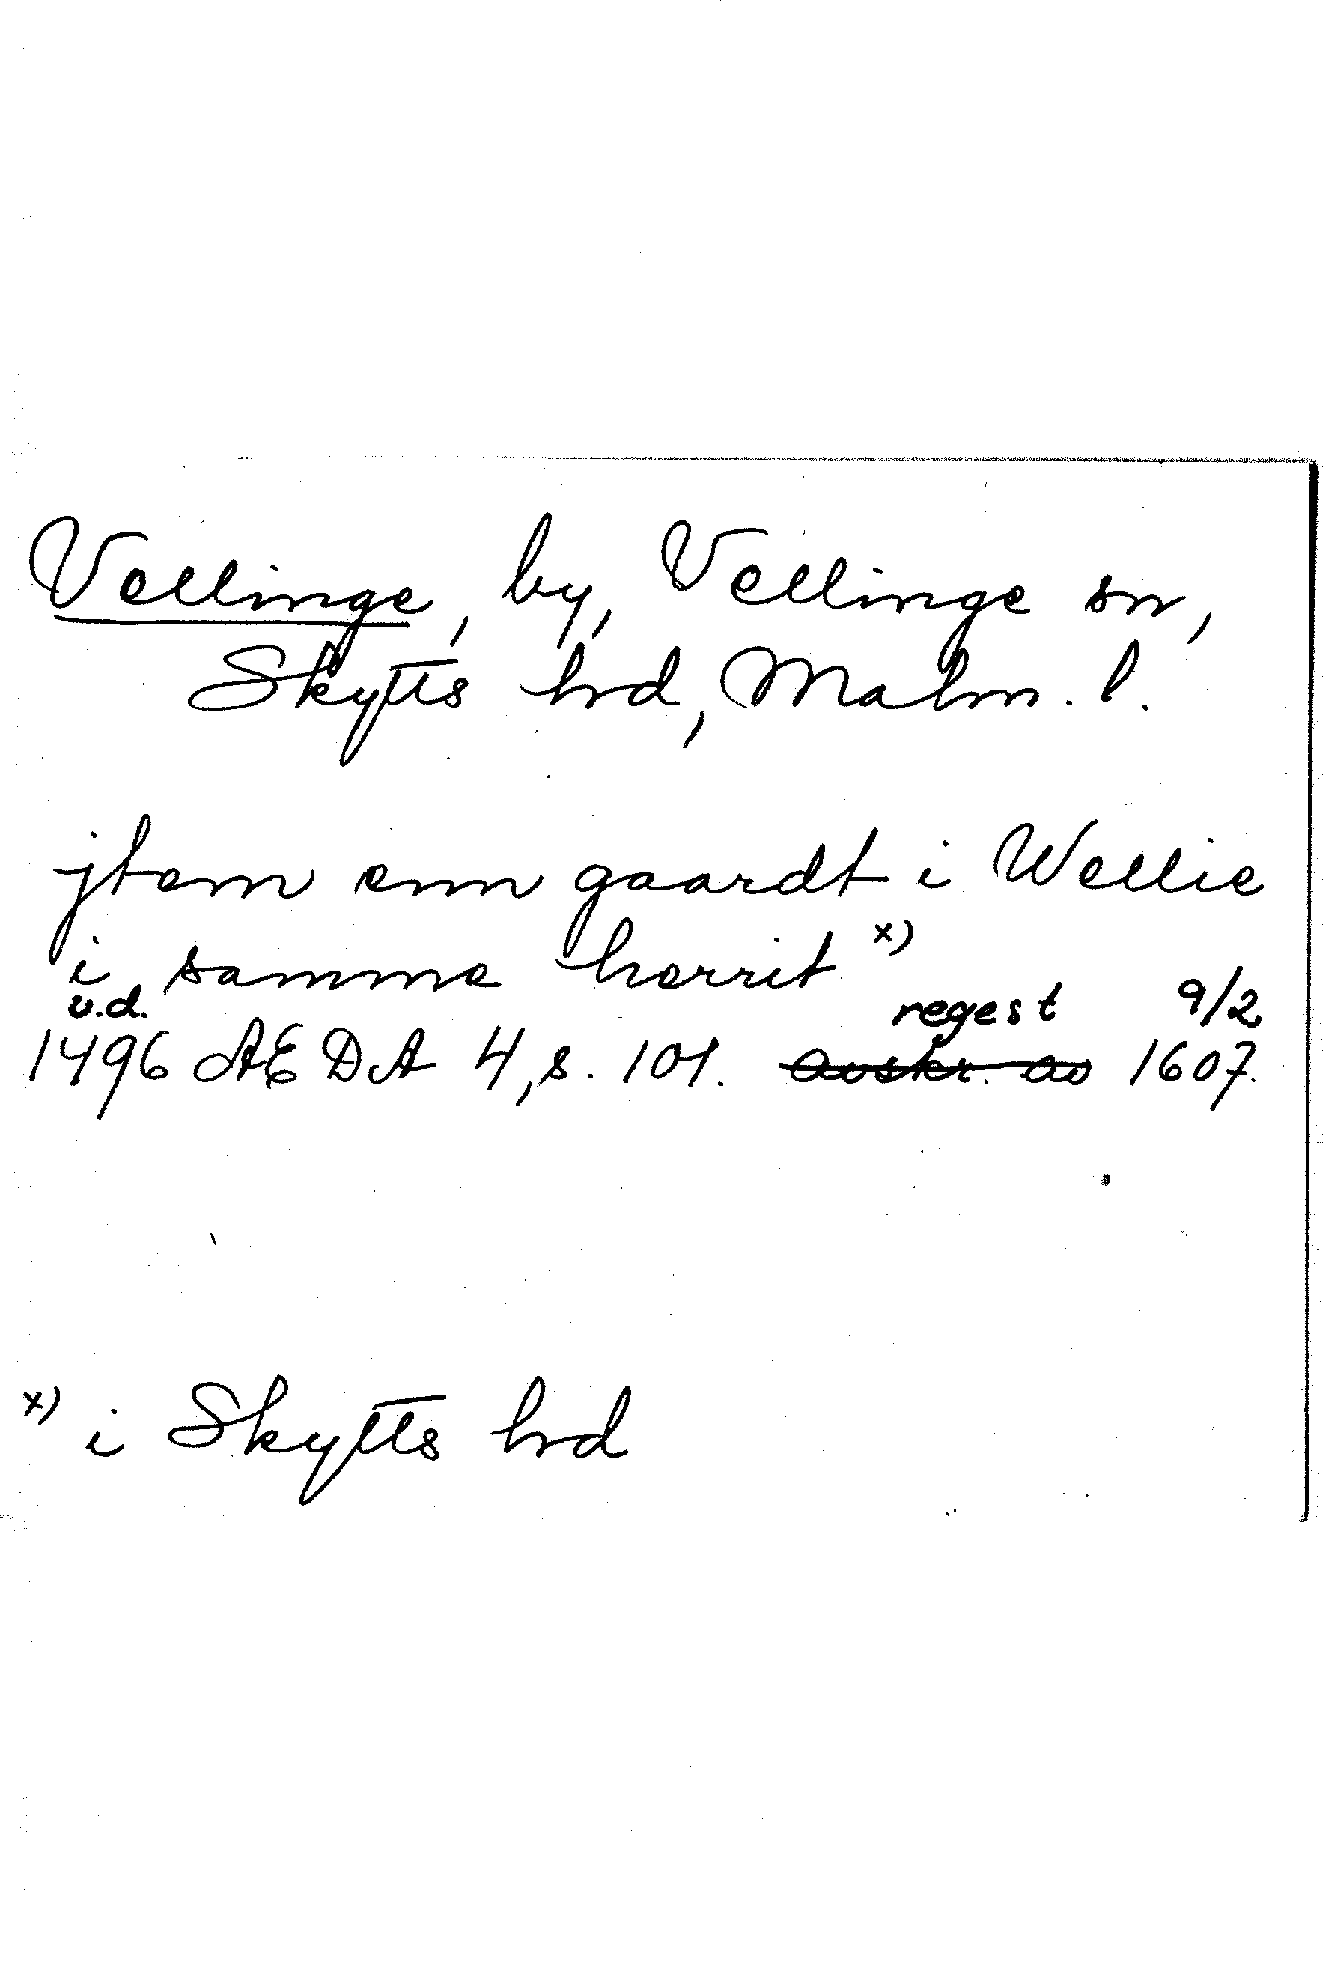 Vellinge, by, Vellinge sn,
Skytts hrd, Malm. l.
jtem enn gaardt i Wellie
i samme herrit x)
u.d. regest 9/2
1496 ÆDA 4, s. 101. avskr. av 1607.
x) i Skytts hrd